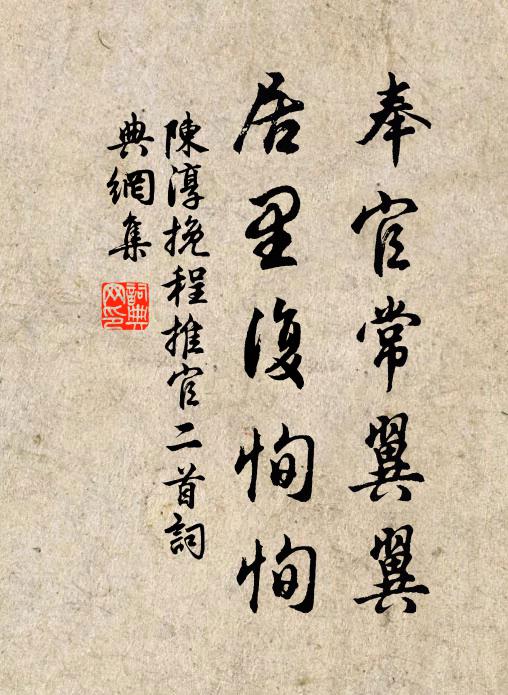 奉官常翼翼
居里復恂恂
陳淳挽程推官二首詞
典網集
詞典網印